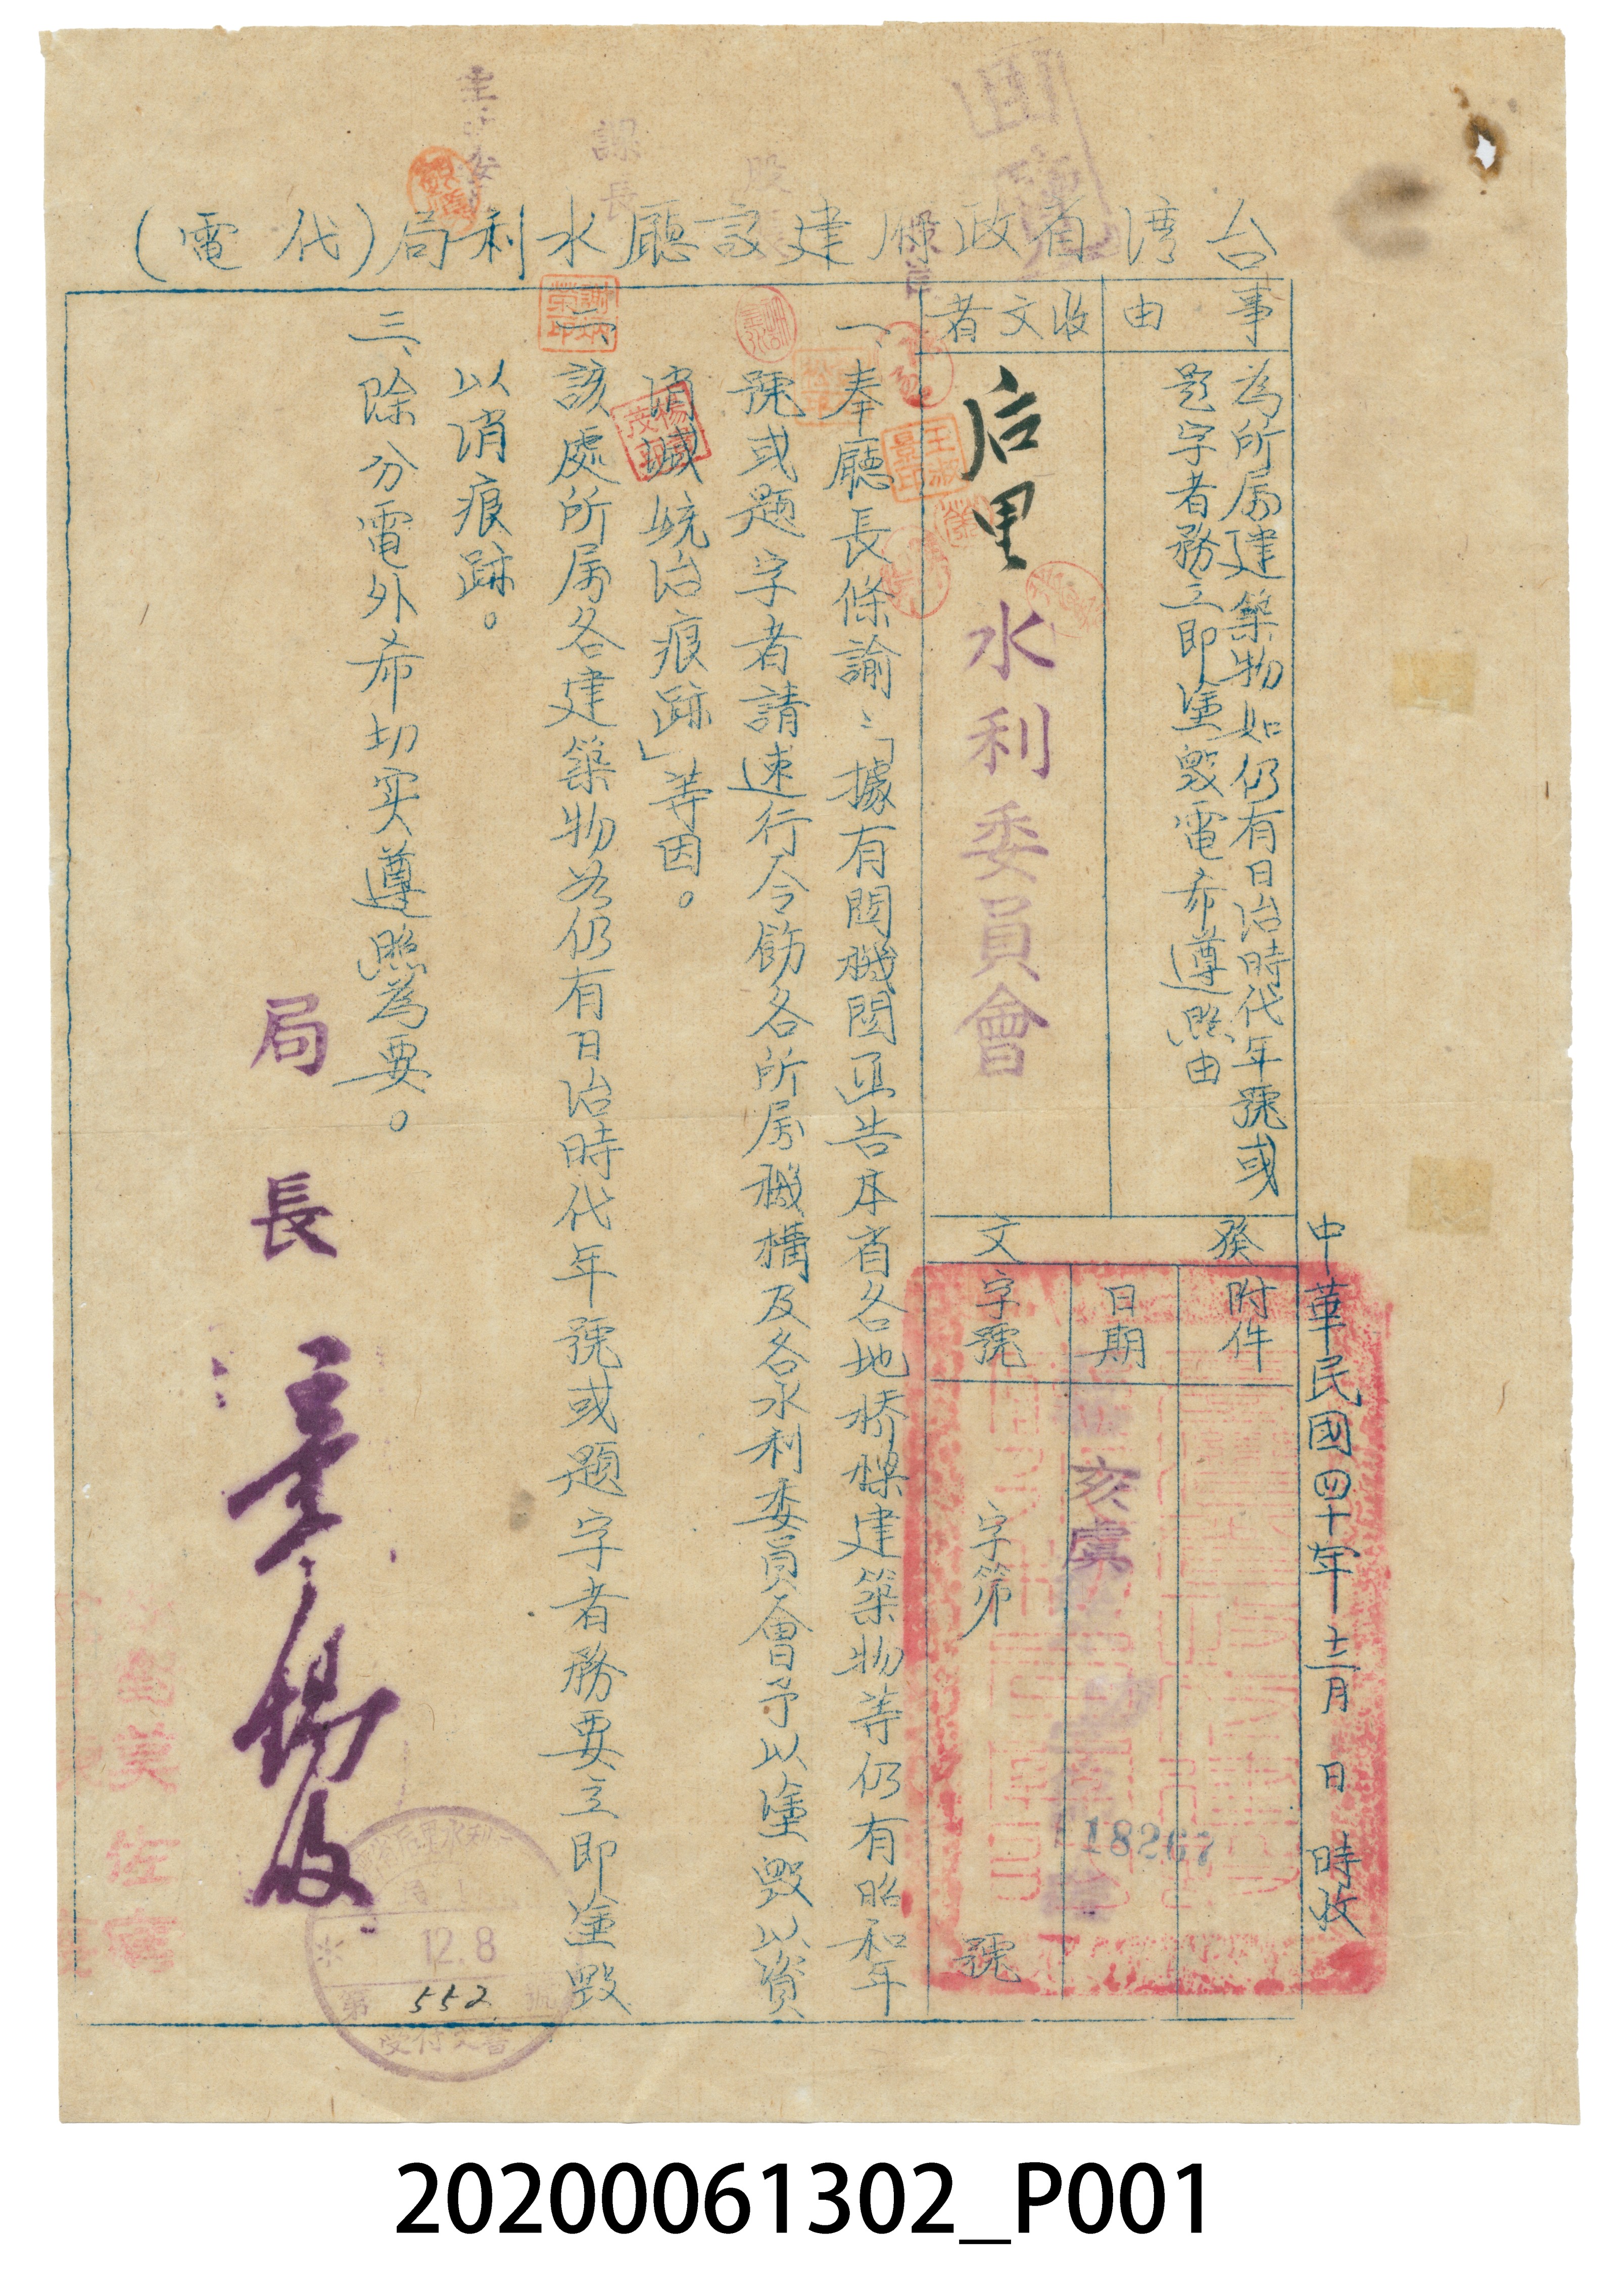 台灣省政府建設廳水利局(代電)
中華民國四十年十二月 日 時收
事由
為所屬建築物如仍有日治時代年號或
題字者務立即塗毀電希遵照由
收文者
后里水利委員會
發文
附件
日期
亥虞
字號
字第 號
18267
一、奉廳長條諭:「據有関機関函告本省各地桥樑建築物等仍有昭和年
號或題字者請速行令飭各所屬機構及各水利委員會予以塗毀以資
消滅統治痕跡」等因。
二、該處所屬各建築物如仍有日治時代年號或題字者務要立即塗毀
以消痕跡。
三、除分電外希切实遵照為要。
局長 章錫綬
12.8
第 552 號
受付文書
課長
20200061302_P001